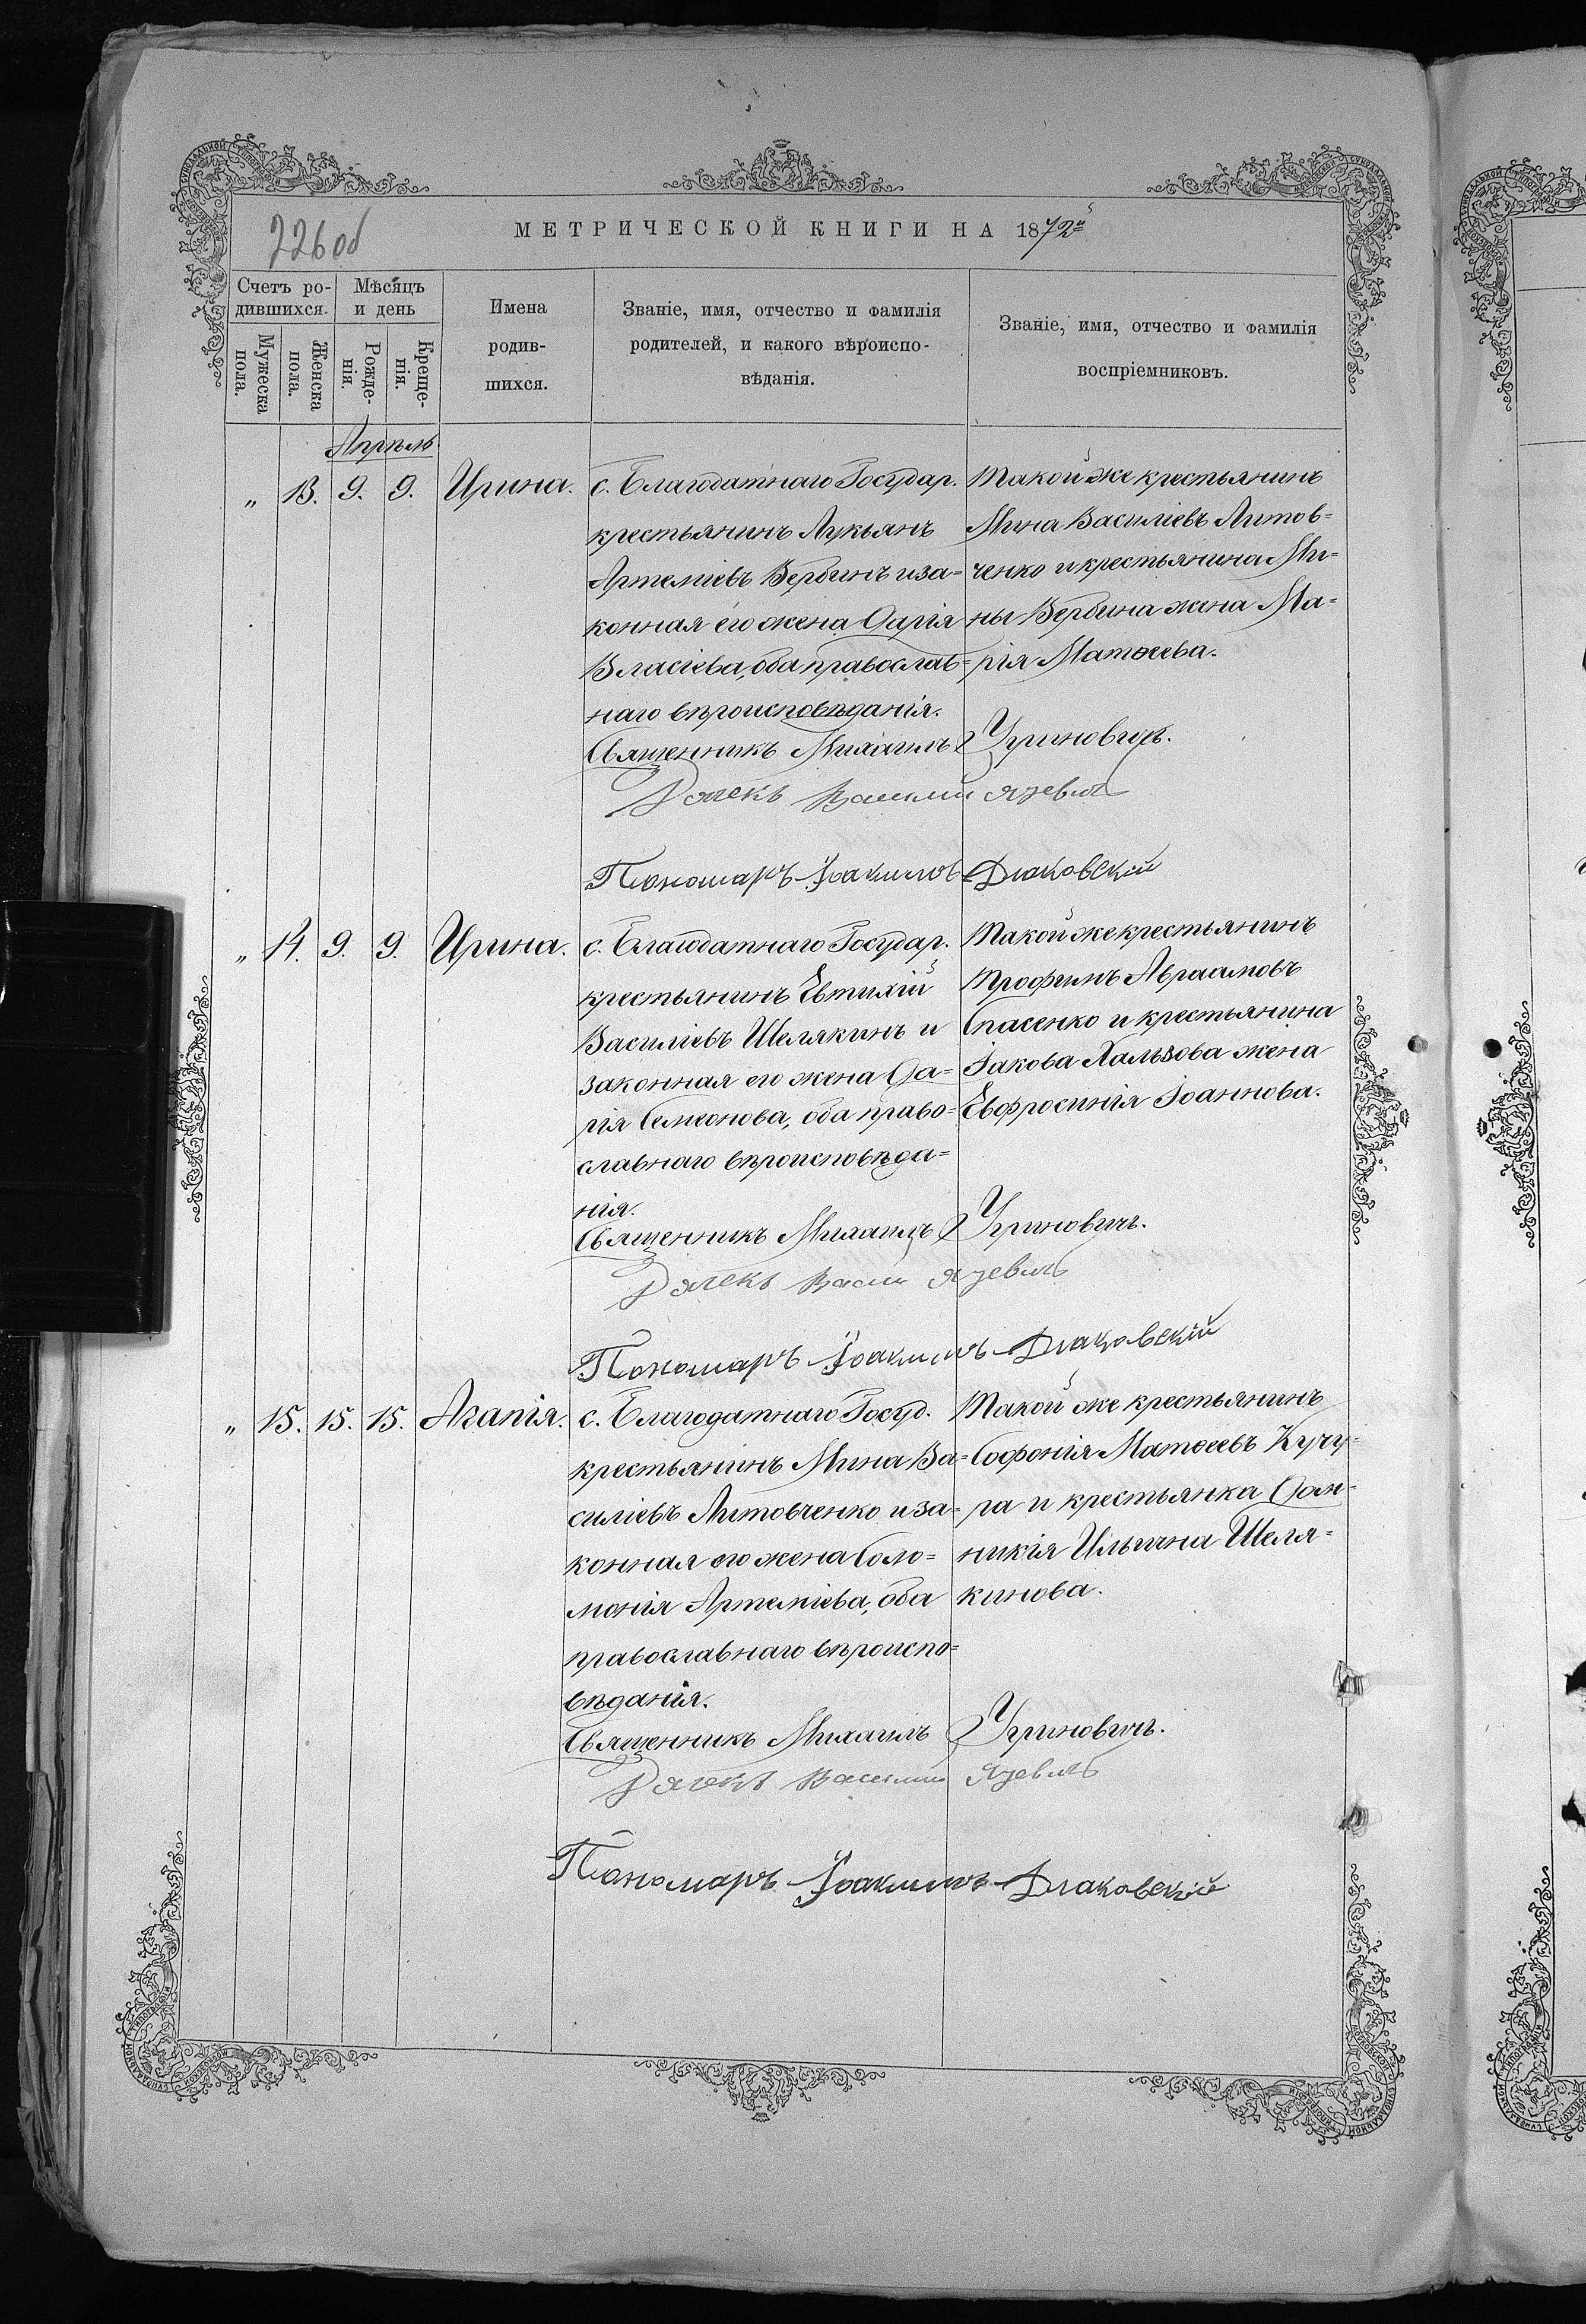 226 об
МЕТРИЧЕСКОЙ КНИГИ НА 1872й
Счетъ ро-
дившихся.
Мѣсяцъ
и день
Мужеска
пола.
Женска
пола.
Рожде-
нія.
Креще-
нія.
Имена
родив-
шихся.
Званіе, имя, отчество и фамилія
родителей, и какого вѣроиспо-
вѣданія.
Званіе, имя, отчество и фамилія
воспріемниковъ.
Апрѣль
„ 13. 9. 9. Ирина.
с. Благодатнаго Государ.
крестьянинъ Лукьянъ
Артеміевъ Вербинъ и за=
конная его жена Дарія
Власіева, оба православ=
наго вѣроисповѣданія.
Такой же крестьянинъ
Мина Василіевъ Литов=
ченко и крестьянина Ми=
ны Вербина жена Ма=
рія Матѳеева.
Священникъ Михаилъ Угриновичъ.
Дячекъ Василий Язевичъ
Пономаръ Іоакимъ Дьяковскій
„ 14. 9. 9. Ирина.
с. Благодатнаго Государ.
крестьянинъ Евтихій
Василіевъ Шелякинъ и
законная его жена Да=
рія Семеонова, оба право=
славнаго вѣроисповѣда=
нія.
Такой же крестьянинъ
Трофимъ Авраамовъ
Спасенко и крестьянина
Іакова Хальзова жена
Евфросинія Іоаннова.
Священникъ Михаилъ Угриновичъ.
Дячекъ Васили Язевичъ
Пономаръ Іоакимъ Дьяковскій
„ 15. 15. 15. Агапія.
с. Благодатнаго Госуд.
крестьянинъ Мина Ва=
силіевъ Литовченко и за=
конная его жена Соло=
монія Артеміева, оба
православнаго вѣроиспо=
вѣданія.
Такой же крестьянинъ
Софонія Матѳеевъ Кучу=
га и крестьянка Дом=
никія Ильична Шеля=
кинова.
Священникъ Михаилъ Угриновичъ.
Дячекъ Василий Язевичъ
Пономаръ Іоакимъ Дьяковскій